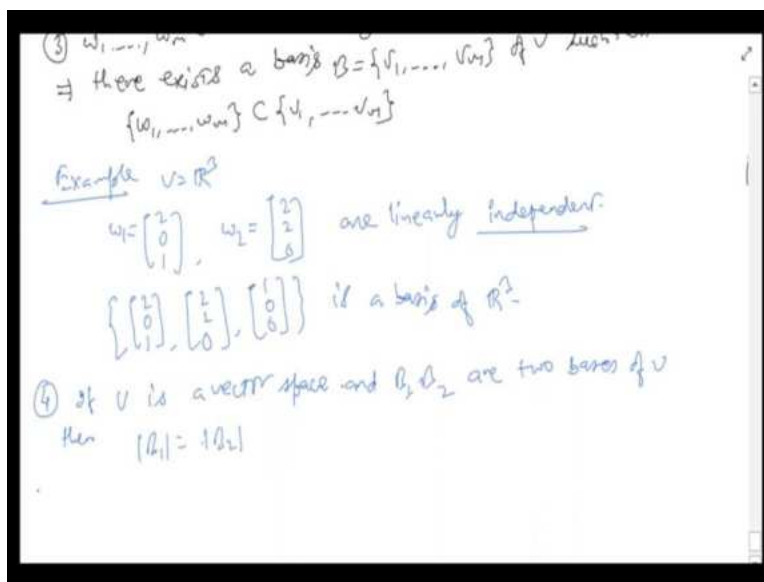 ③ w₁,...., wₘ
⇒ there exists a basis B={v₁,...., vₘ} of V such
{w₁,..., wₘ} ⊂ {v₁, ---- vₘ}
Example V=ℝ³
w₁=[2 0 1], w₂=[2 2 0] are linearly independent.
{[2 0 1], [2 2 0], [1 0 0]} is a basis of ℝ³.
④ If V is a vector space and B₁, B₂ are two bases of V
then |B₁|= |B₂|